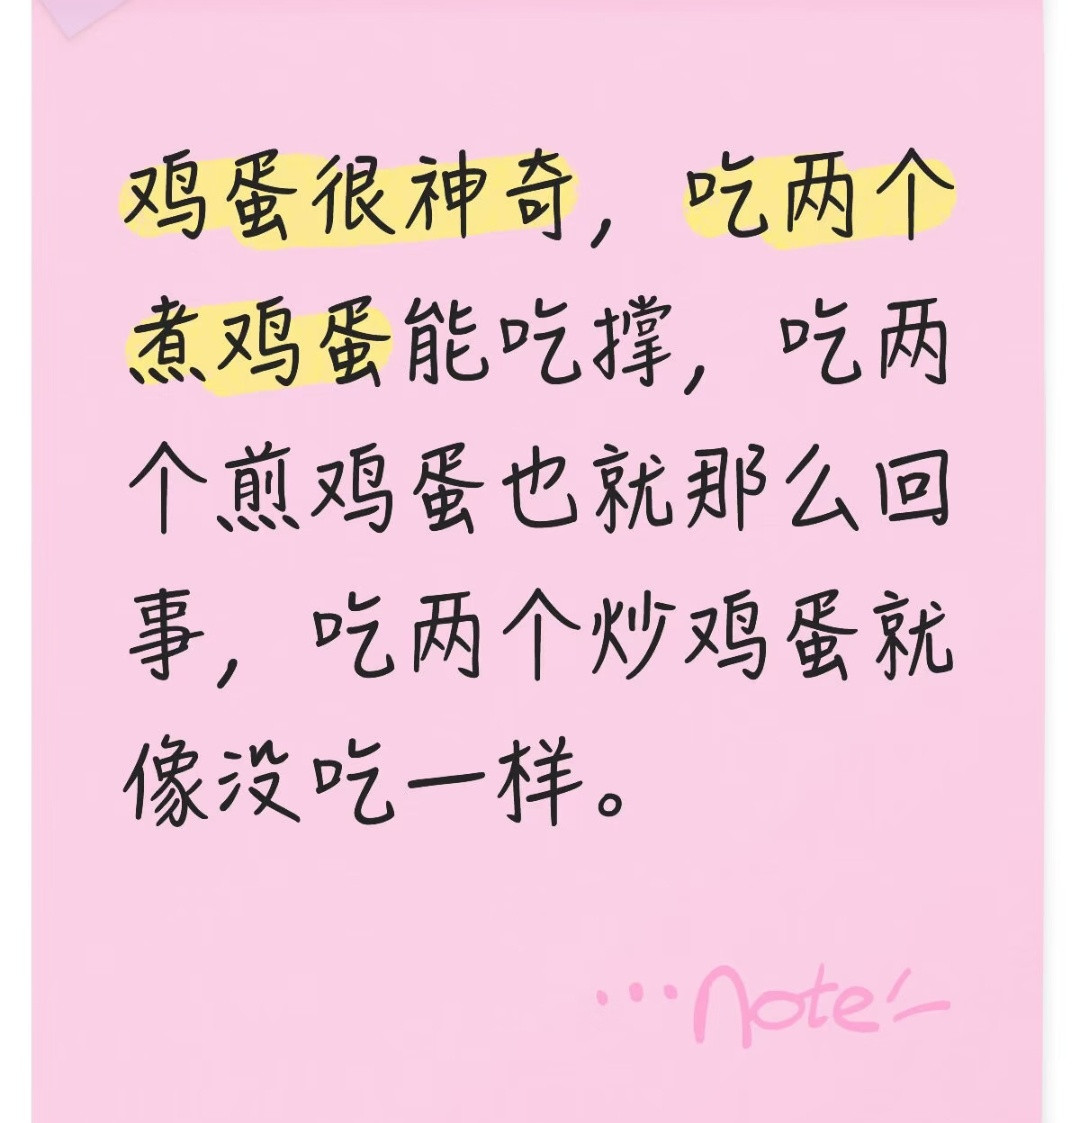 鸡蛋很神奇，吃两个
煮鸡蛋能吃撑，吃两
个煎鸡蛋也就那么回
事，吃两个炒鸡蛋就
像没吃一样。
...note